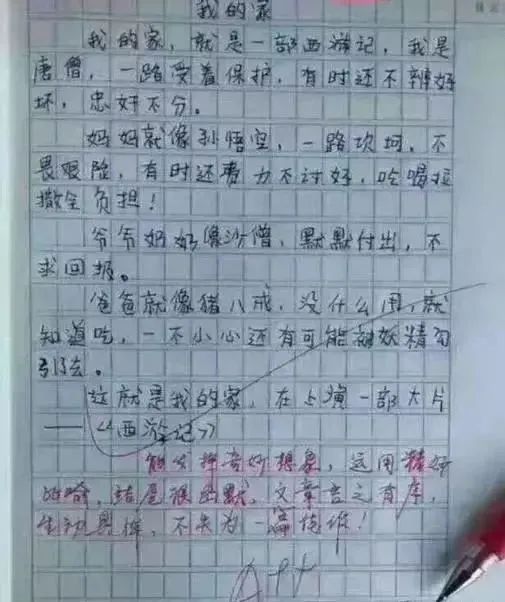 我的家
我的家，就是一部西游记，我是
唐僧，一路受着保护，有时还不辨好
坏，忠奸不分。
妈妈就像孙悟空，一路坎坷，不
畏艰险，有时还费力不讨好，吃喝拉
撒全负担！
爷爷奶奶像沙僧，默默付出，不
求回报。
爸爸就像猪八戒，没什么用，就
知道吃，一不小心还有可能被妖精勾
引去。
这就是我的家，在上演一部大片
——《西游记》
能发挥奇妙想象，运用精妙
比喻，结尾很幽默，文章言之有序，
生动具体，不失为一篇佳作！
A++